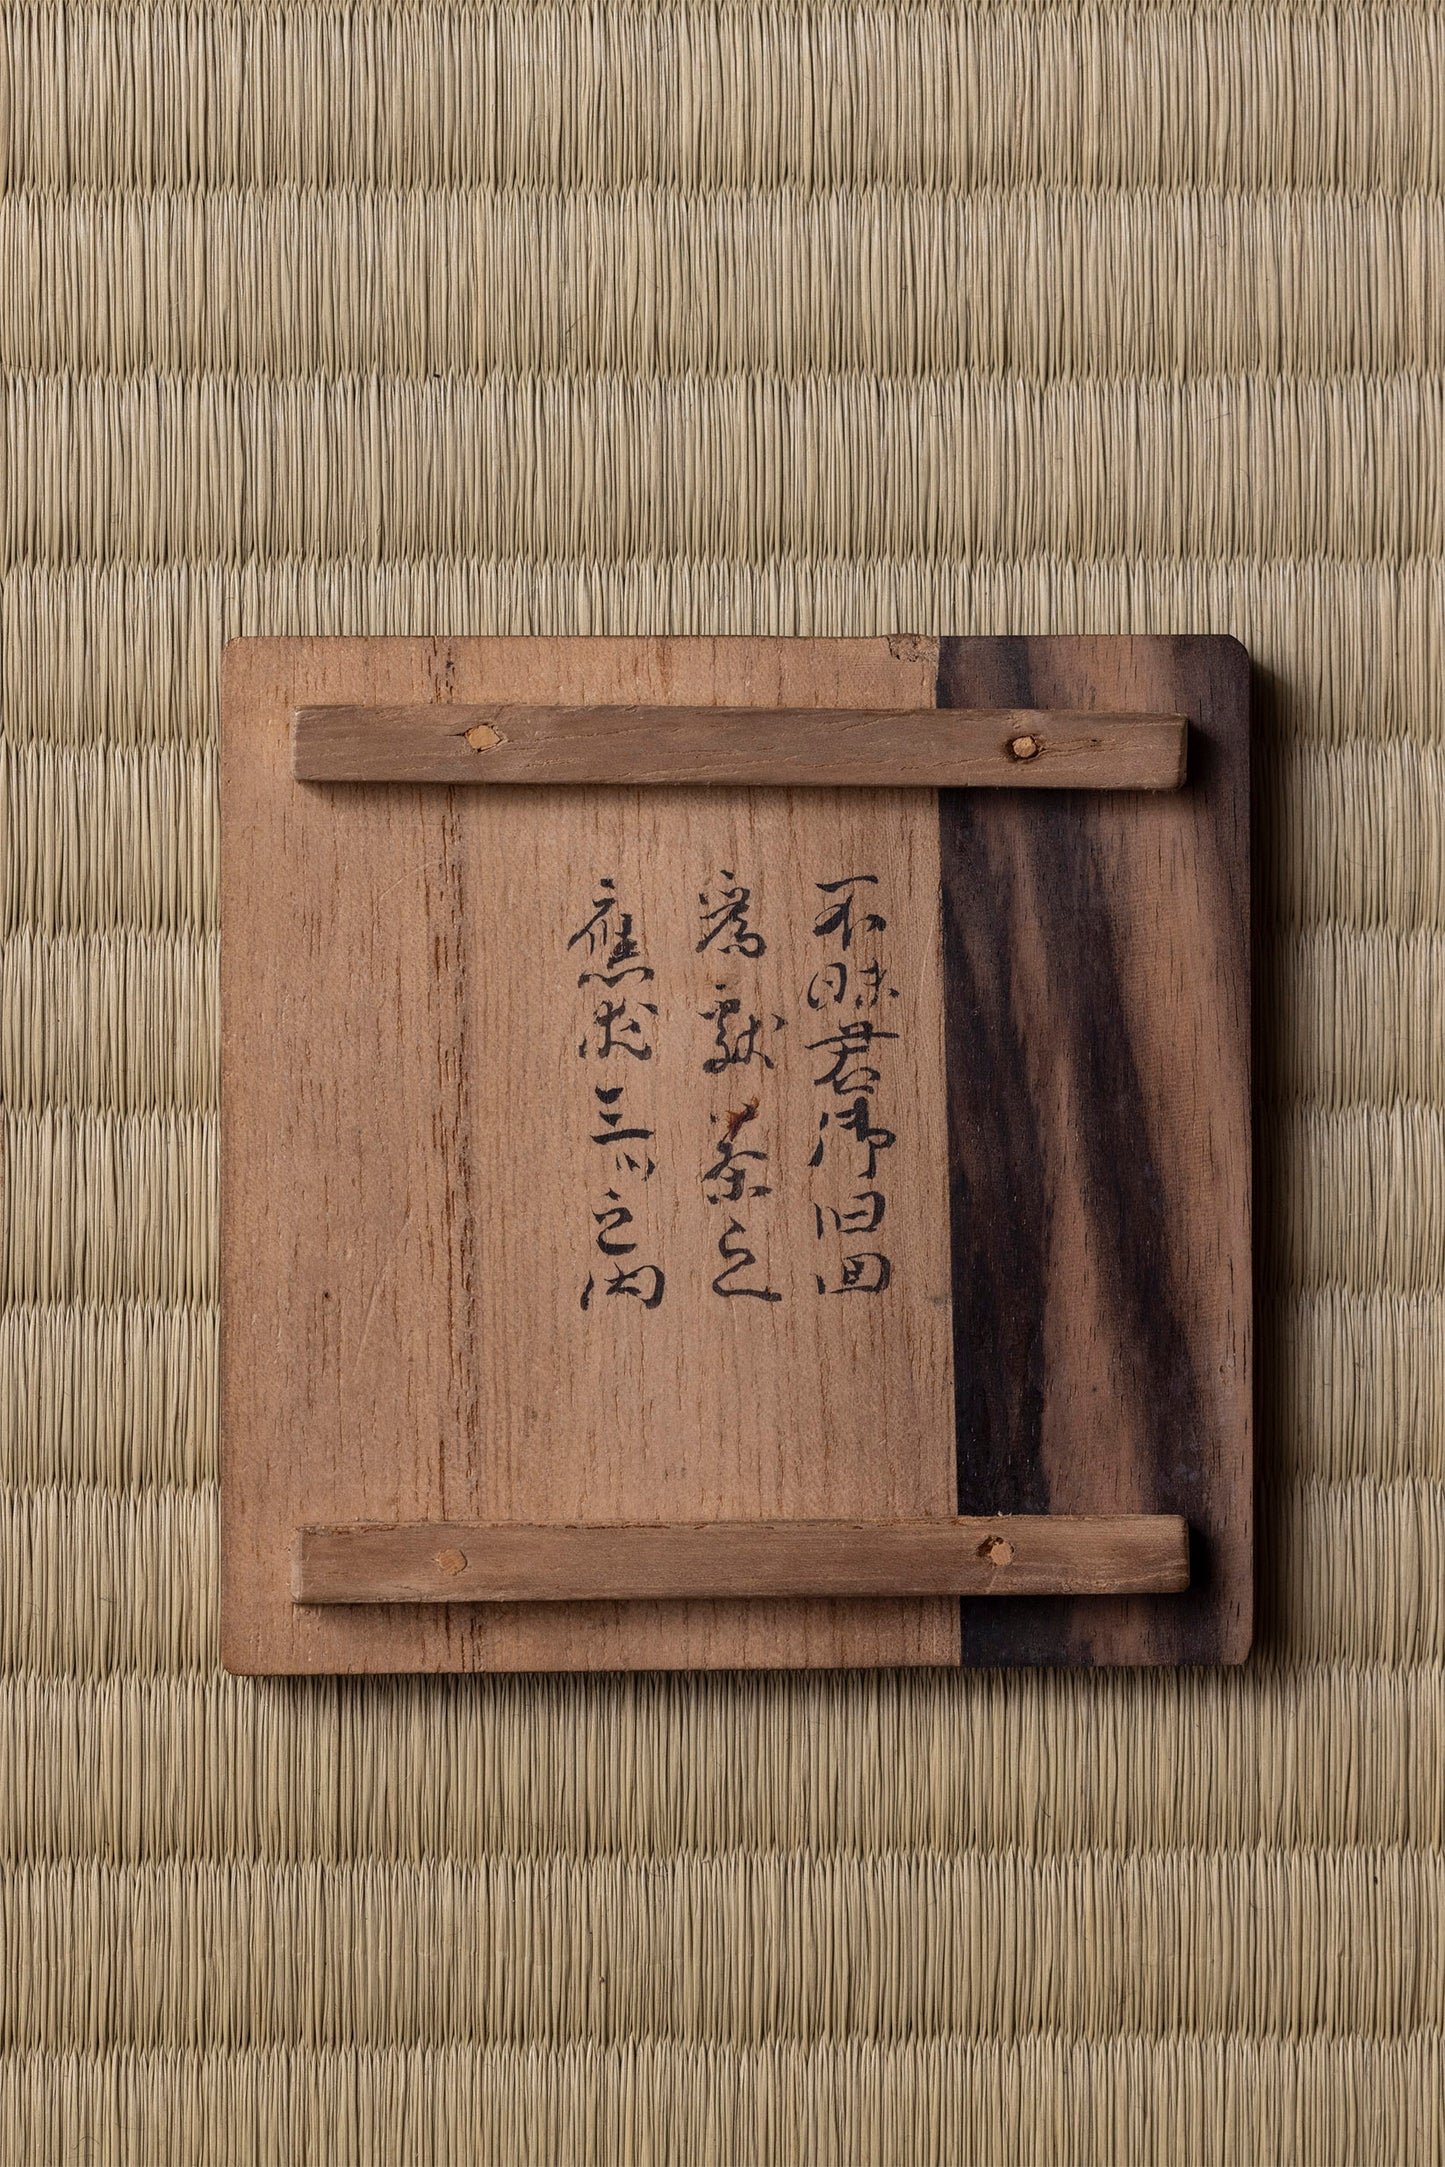 不昧君御旧回
為獻茶之
應求三ツ之内